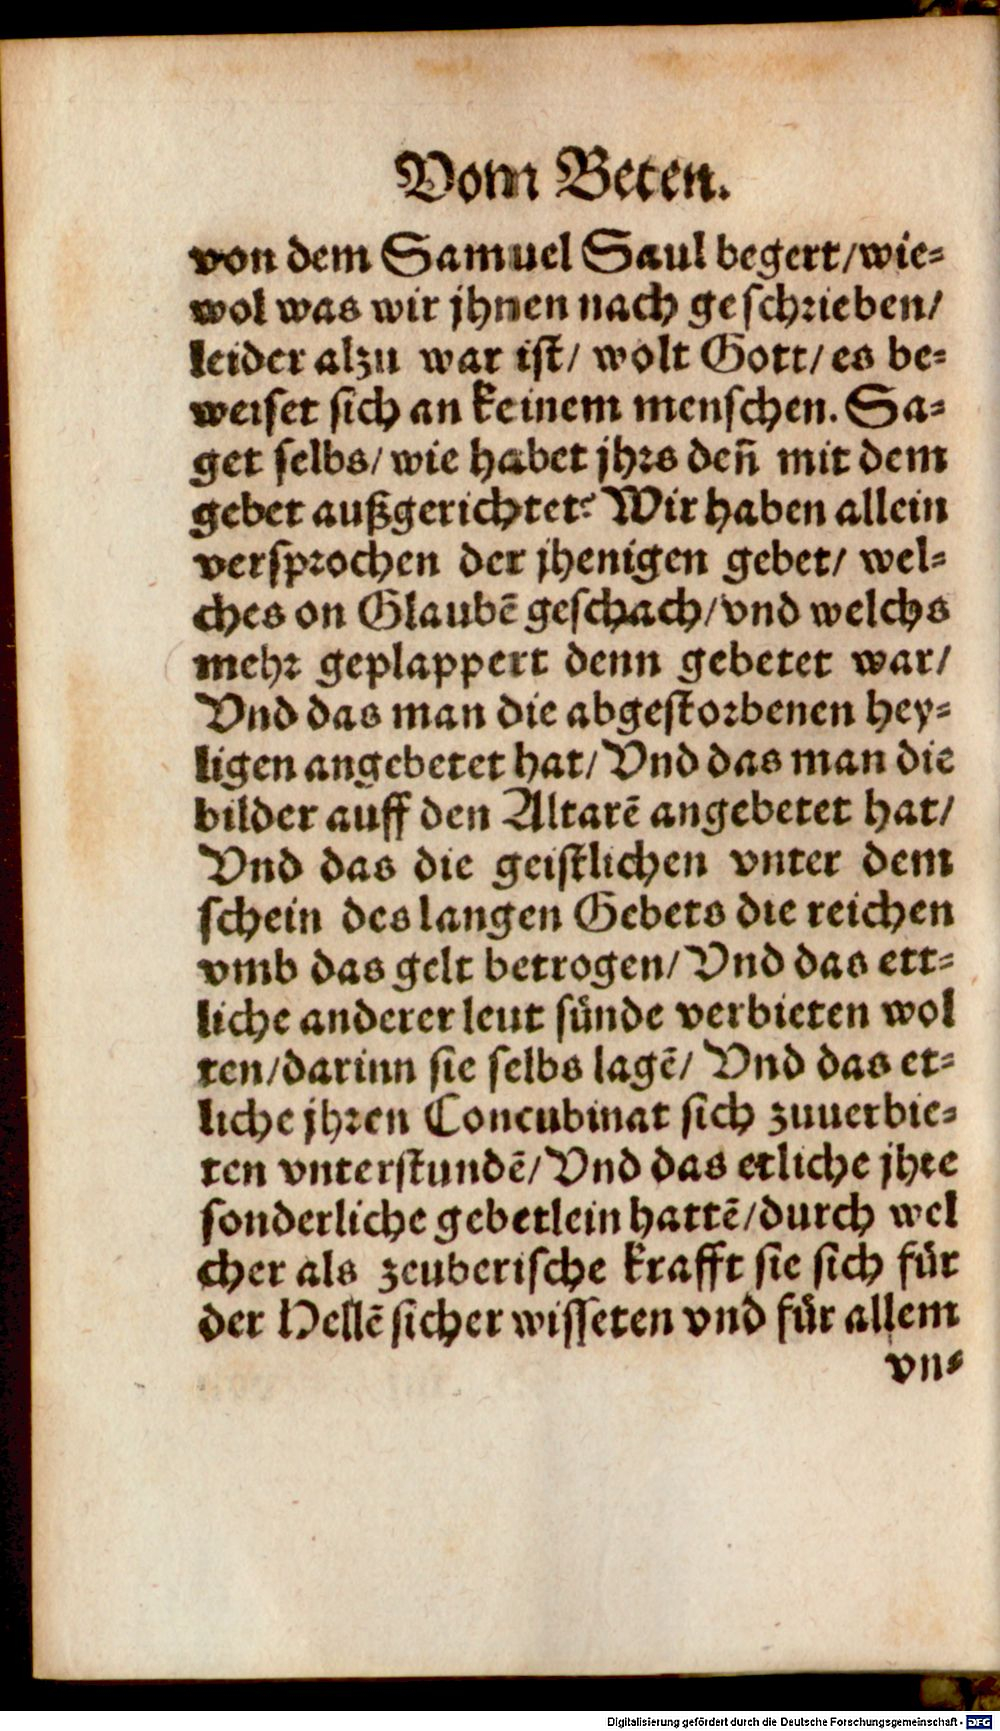 Vom Beten.
von dem Samuel Saul begert/wie⸗
wol was wir jhnen nach geschrieben/
leider alzu war ist/ wolt Gott/ es be⸗
weiset sich an keinem menschen. Sa⸗
get selbs/ wie habet jhrs deñ mit dem
gebet außgerichtet? Wir haben allein
versprochen der jhenigen gebet/ wel⸗
ches on Glaubẽ geschach/vnd welchs
mehr geplappert denn gebetet war/
Vnd das man die abgestorbenen hey⸗
ligen angebetet hat/ Vnd das man die
bilder auff den Altarẽ angebetet hat/
Vnd das die geistlichen vnter dem
schein des langen Gebets die reichen
vmb das gelt betrogen/ Vnd das ett⸗
liche anderer leut sünde verbieten wol
ten/darinn sie selbs lagẽ/ Vnd das et⸗
liche jhren Concubinat sich zuuerbie⸗
ten vnterstundẽ/ Vnd das etliche jhre
sonderliche gebetlein hattẽ/durch wel
cher als zeuberische krafft sie sich für
der Hellẽ sicher wisseten vnd für allem
vn⸗
Digitalisierung gefördert durch die Deutsche Forschungsgemeinschaft - DFG